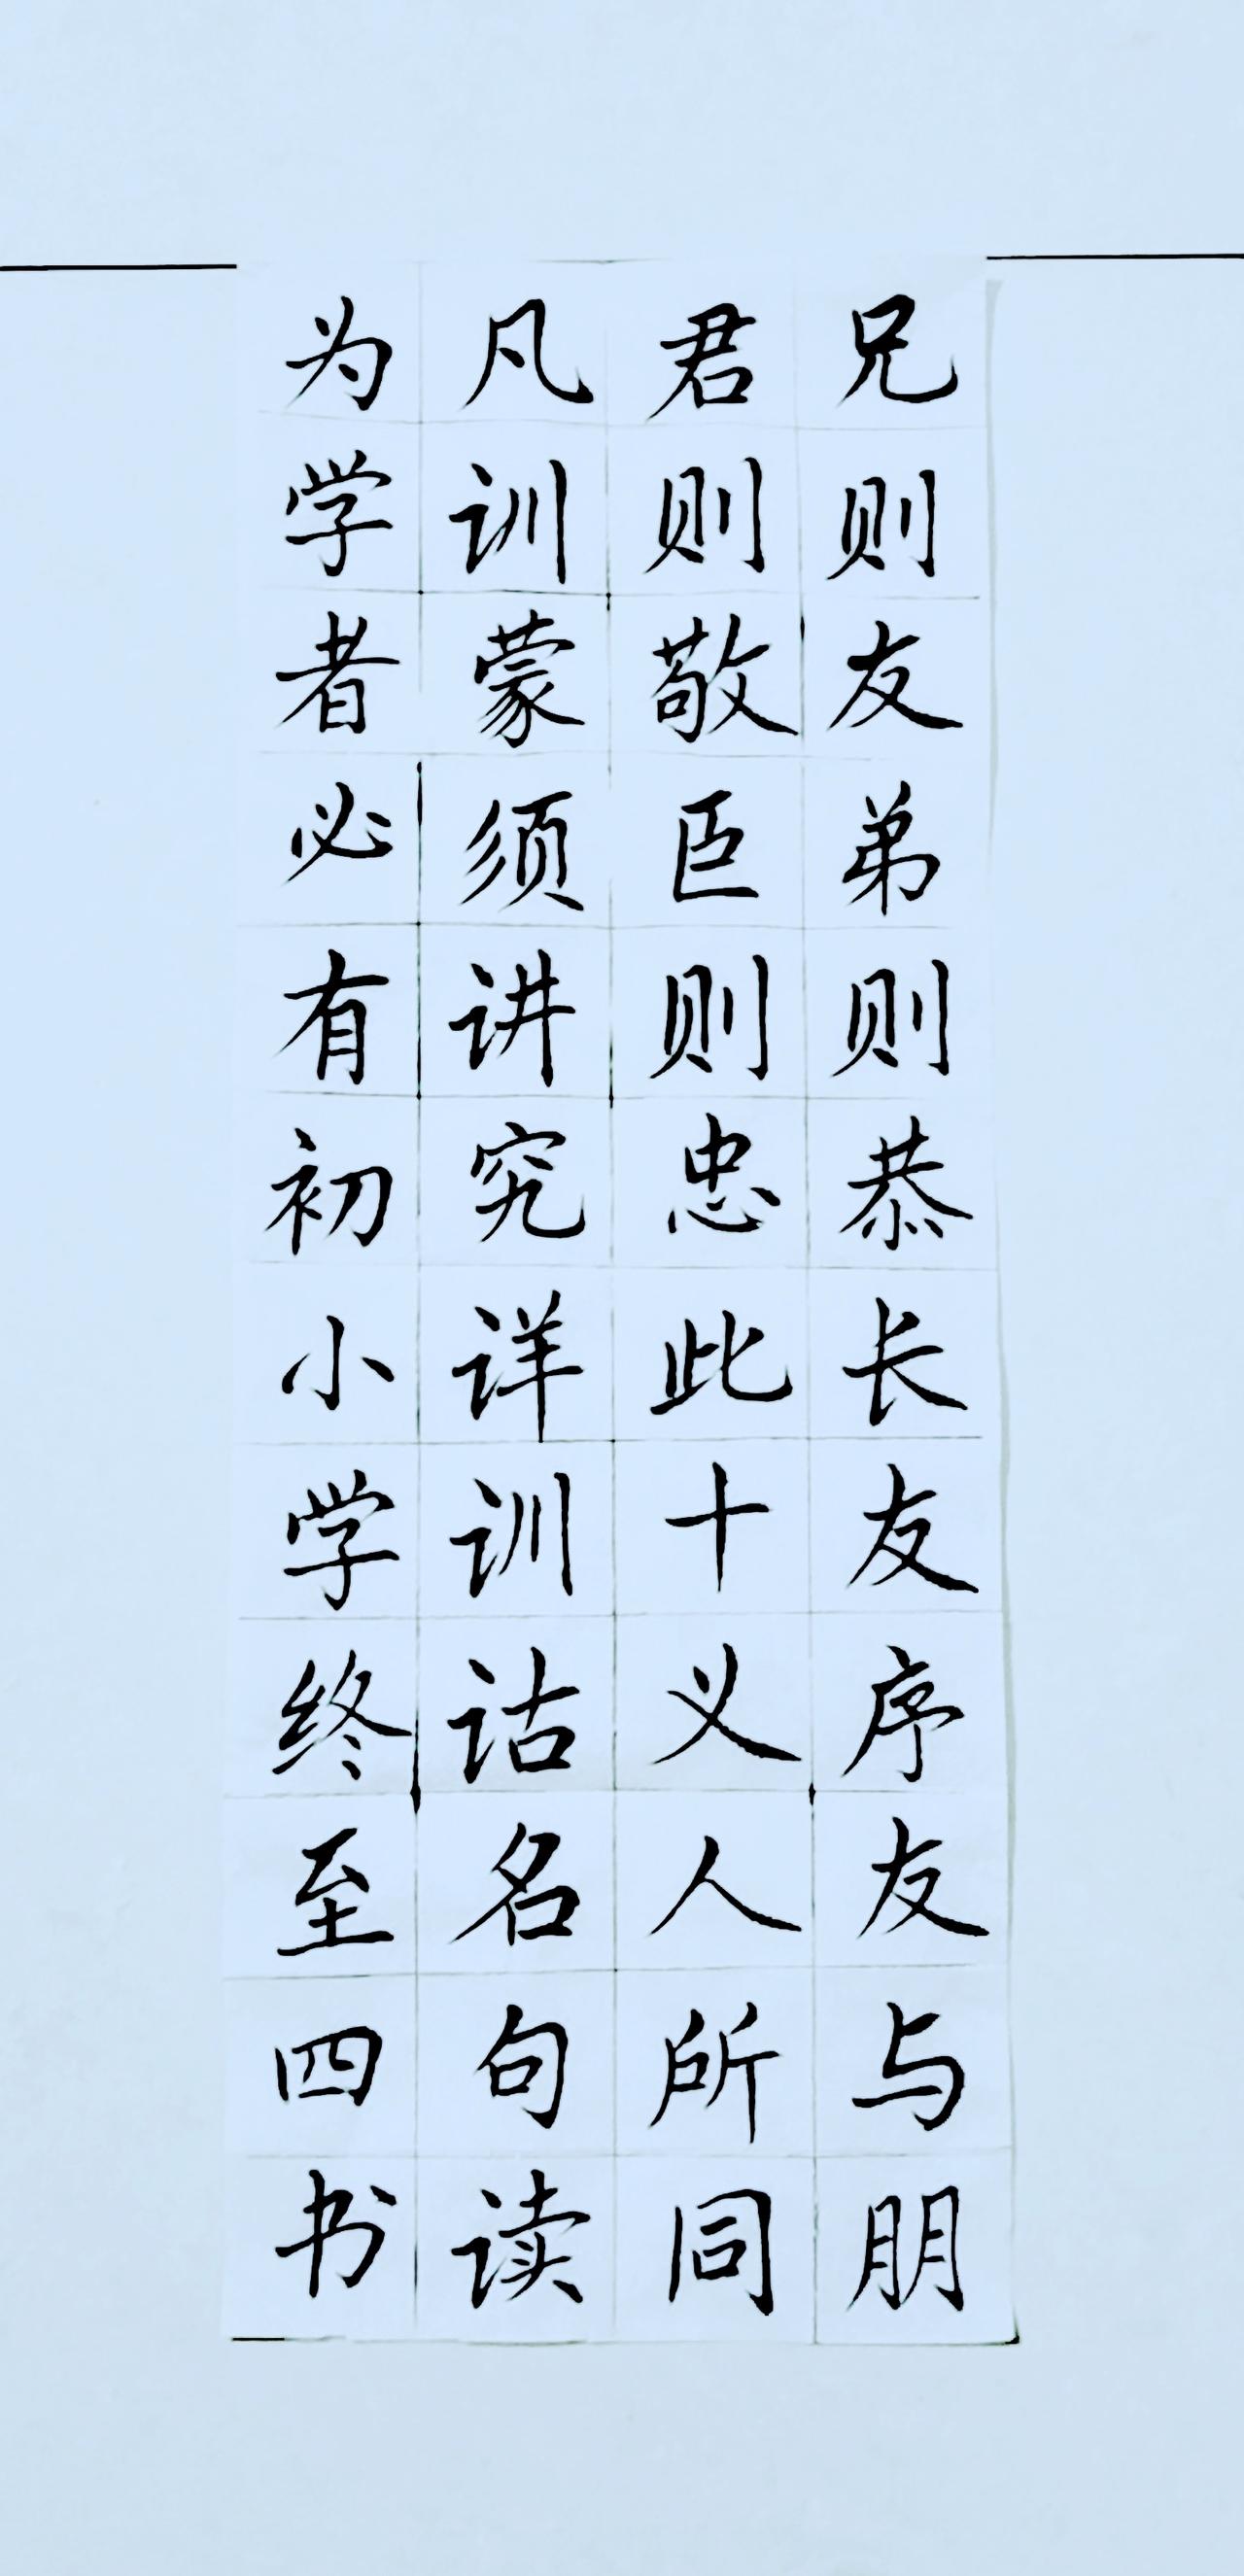 兄则友弟则恭长友序友与朋
君则敬臣则忠此十义人所同
凡训蒙须讲究详训诂名句读
为学者必有初小学终至四书